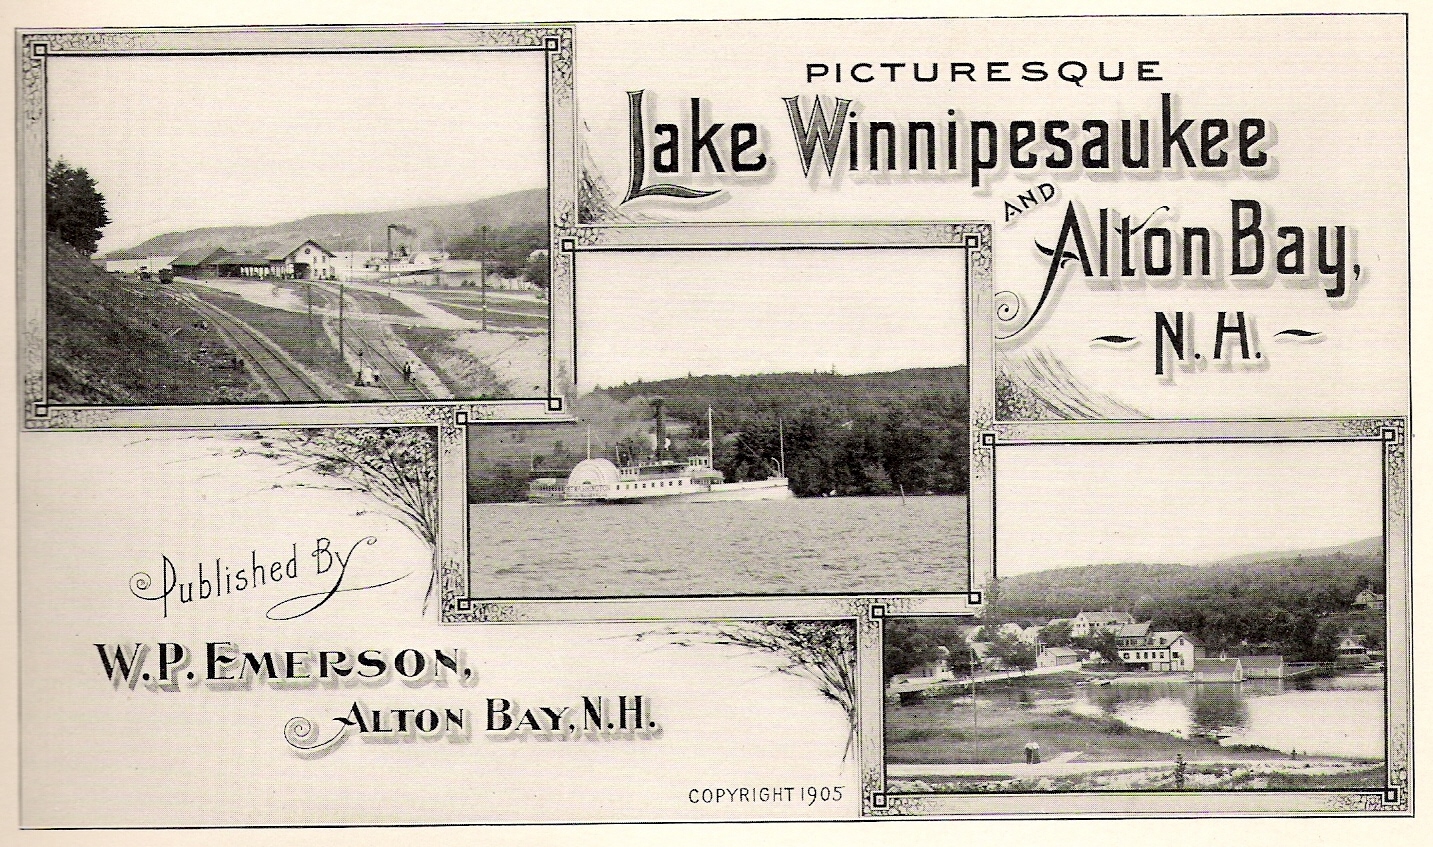 PICTURESQUE
Lake Winnipesaukee
AND
Alton Bay,
N.H.
WASHINGTON
Published By
W.P. EMERSON,
ALTON BAY, N.H.
COPYRIGHT 1905